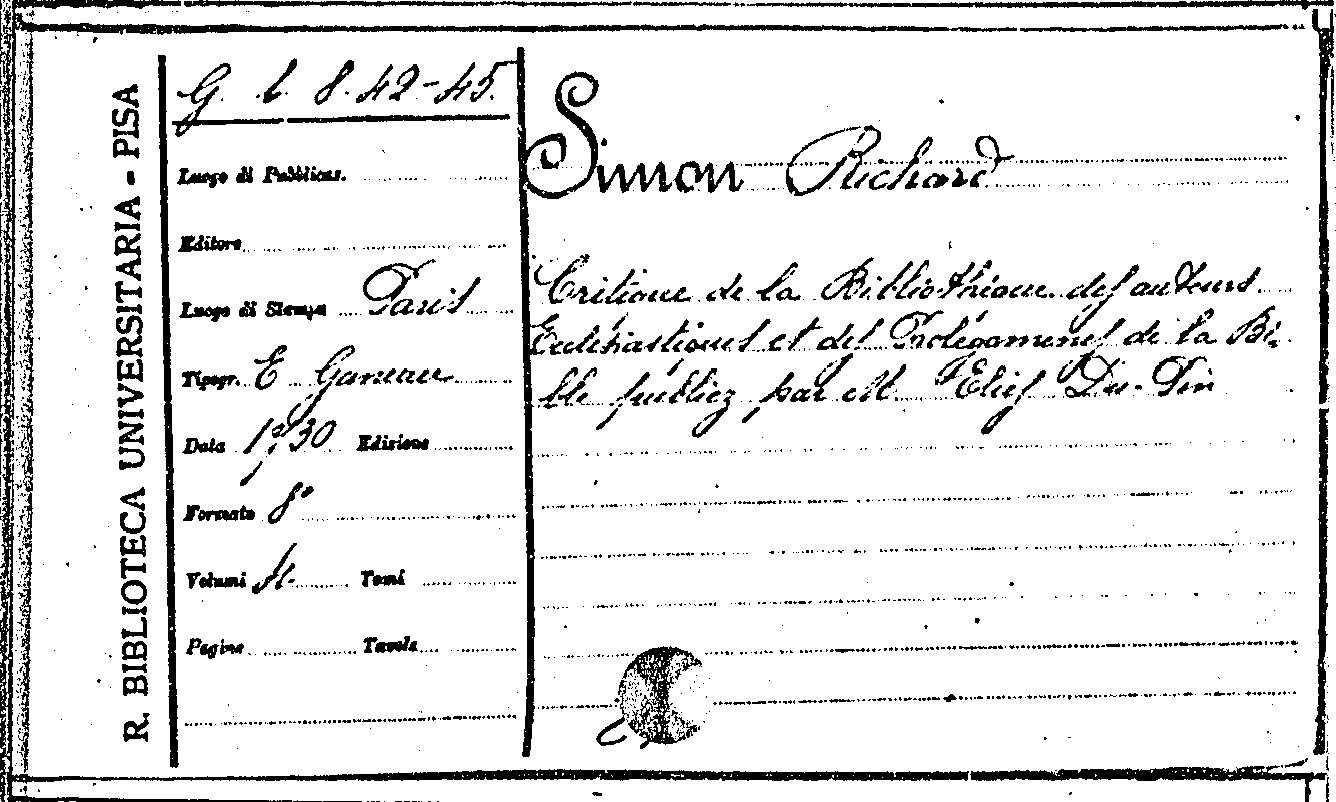 R. BIBLIOTECA UNIVERSITARIA - PISA
G. b. 8. 42-45.
Luogo di Pubblicaz.
Editore
Luogo di Stampa Paris
Tipogr. E Ganeau
Data 1730 Edizione
Formato 8°
Volumi 4. Tomi
Pagine Tavole
Simon Richard
Critique de la Bibliothique des auteurs
Ecclésiastiques et des Prolégomenes de la Bi-
ble publiez par M. Elies Du-Pin